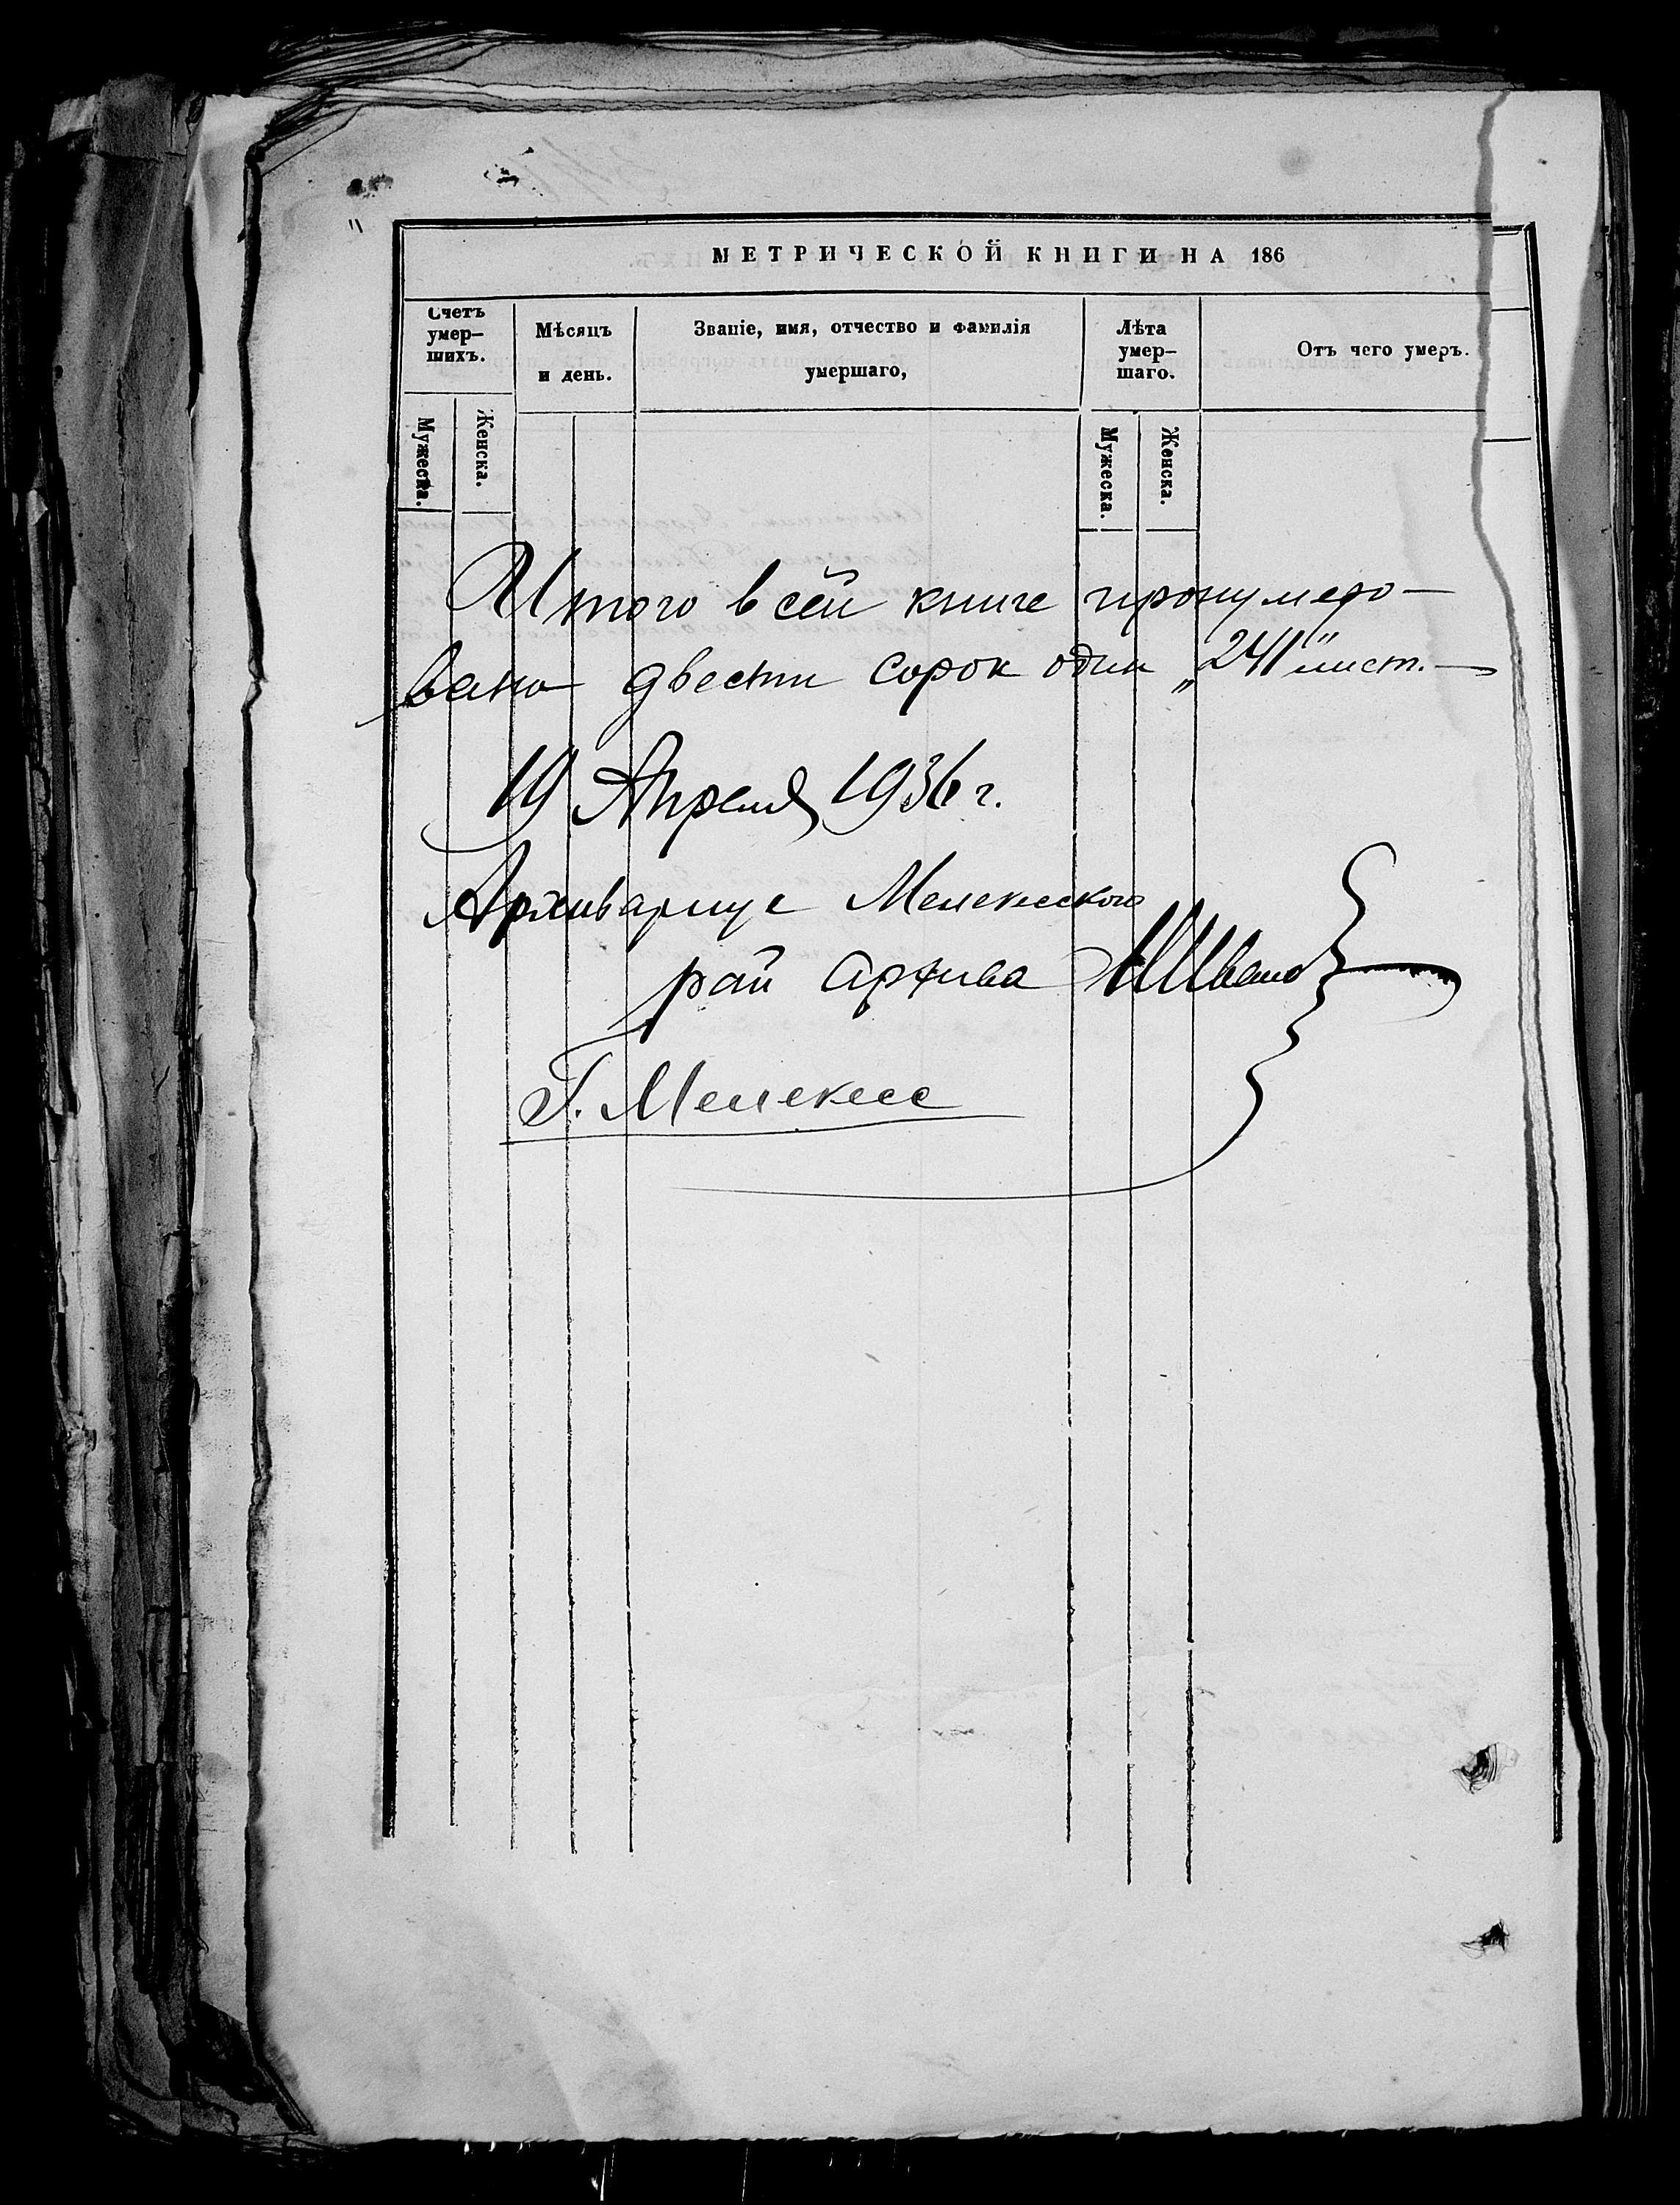 МЕТРИЧЕСКОЙ КНИГИ НА 186
Счетъ
умер-
шихъ.
Мѣсяцъ
и день.
Званіе, имя, отчество и фамилія
умершаго,
Лѣта
умер-
шаго.
Отъ чего умеръ.
Мужеска.
Женска.
Мужеска.
Женска.
Итого всей книге пронумеро-
вано двести сорок один „241" лист.
19 Апреля 1936 г.
Архивариус Мелекесского
рай архива
Г. Мелекесс